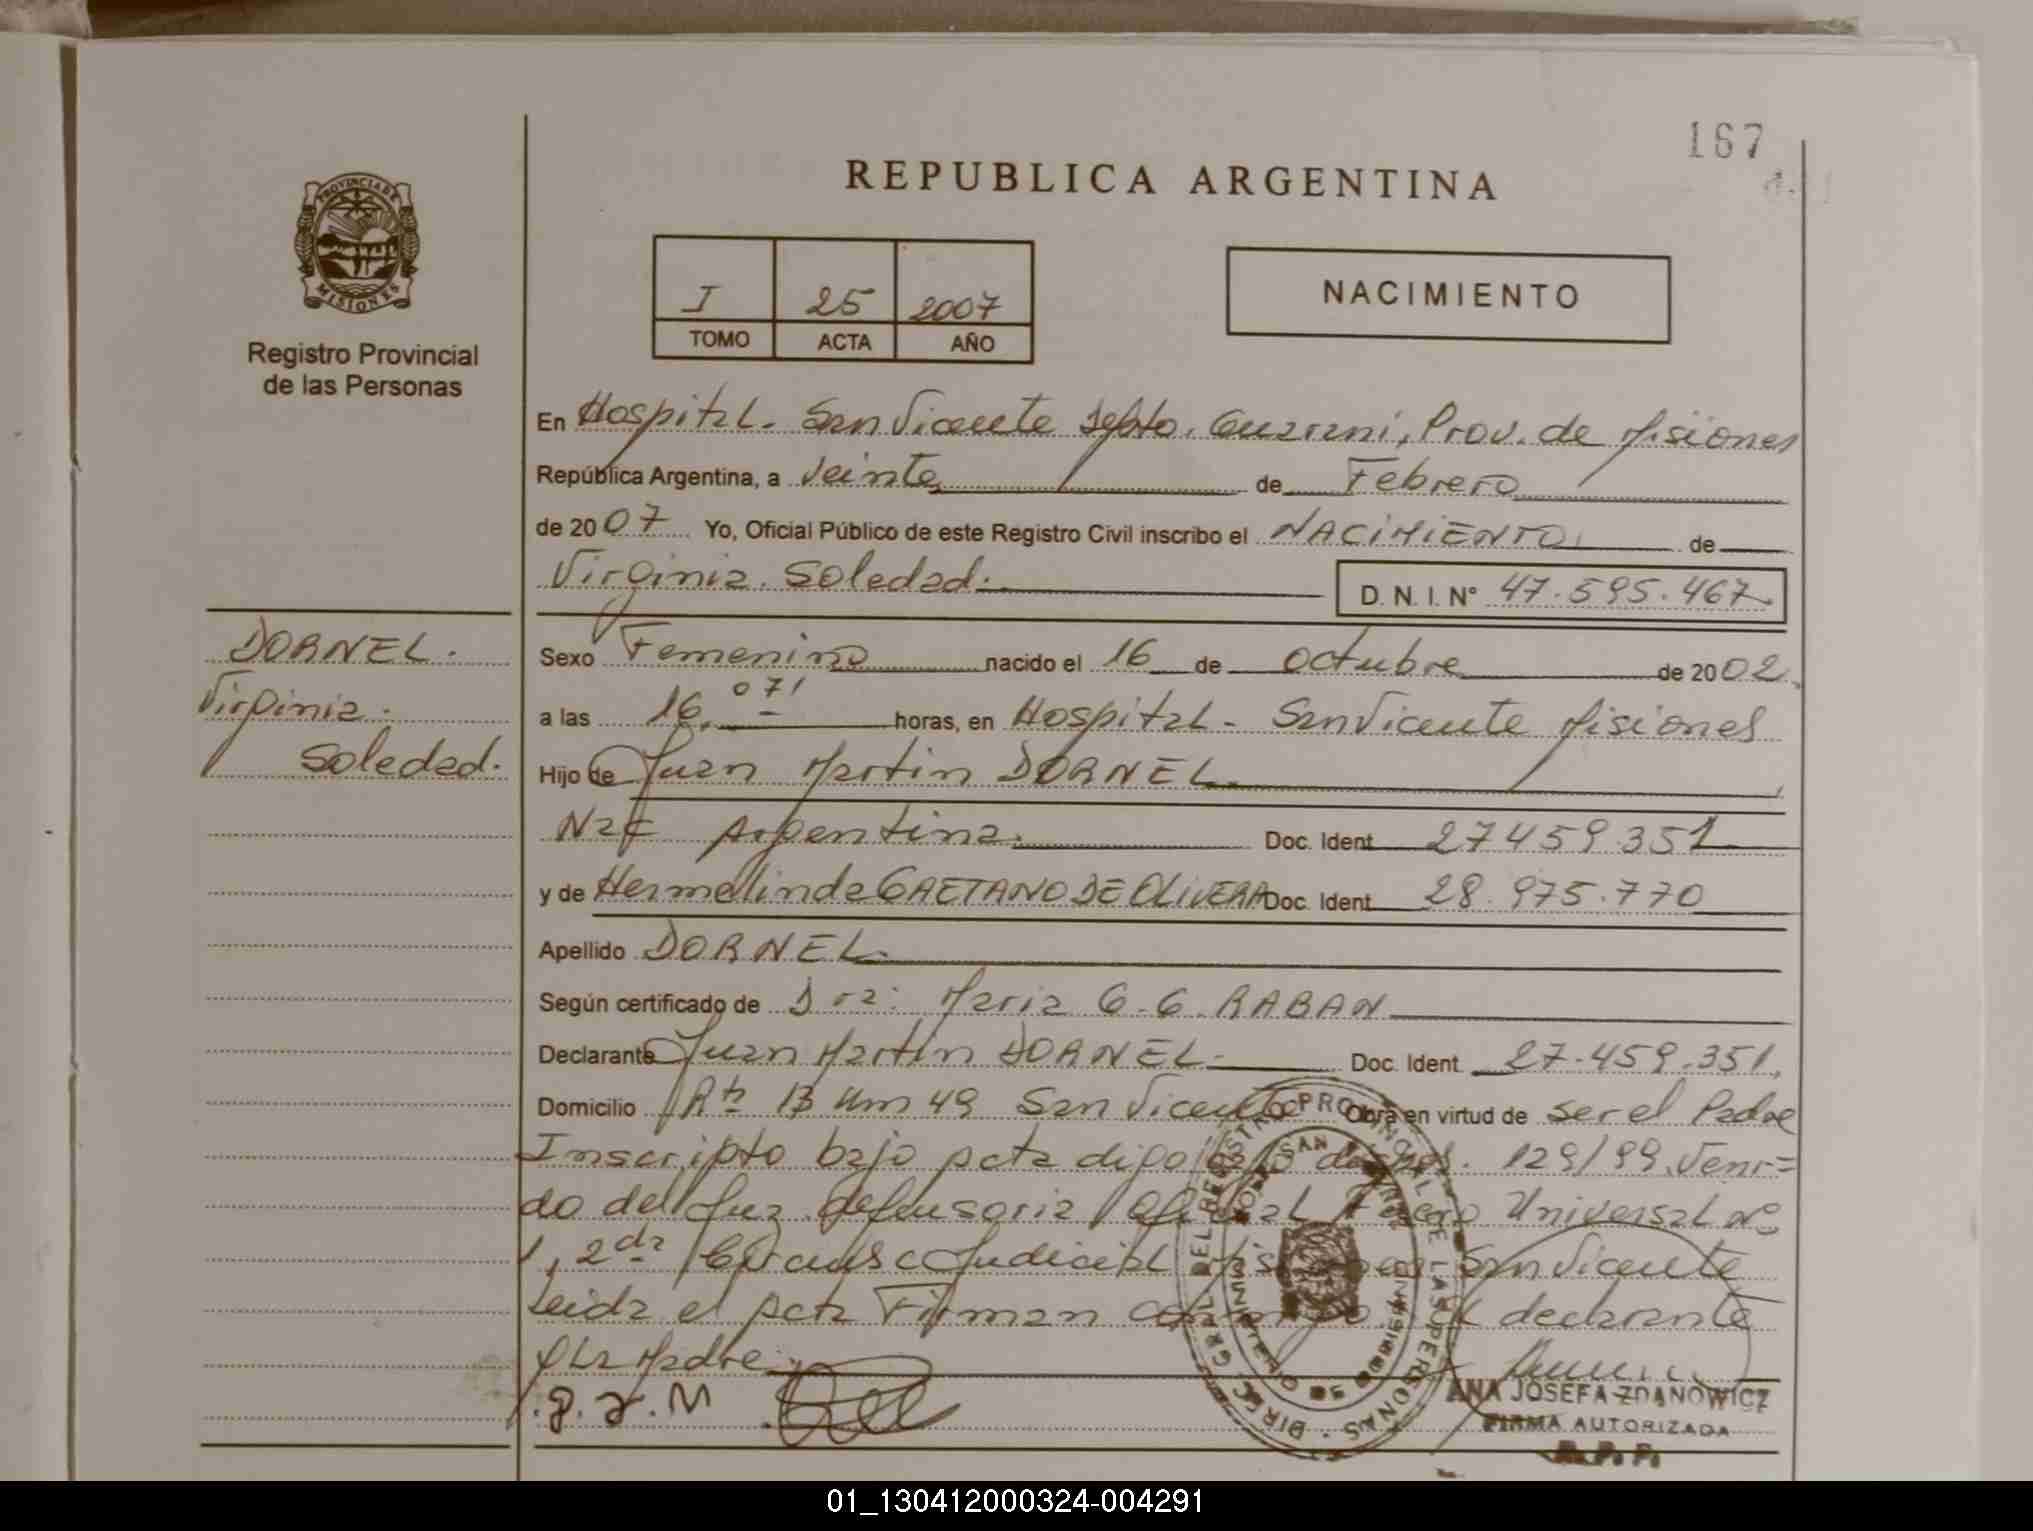 167
REPUBLICA ARGENTINA
PROVINCIA DE
MISIONES
Registro Provincial
de las Personas
I 25 2007
TOMO ACTA AÑO
NACIMIENTO
En Hospital. San Vicente Depto. Guarani, Prov. de Misiones
República Argentina, a Veinte de Febrero
de 2007 Yo, Oficial Público de este Registro Civil inscribo el NACIMIENTO de
Virginia Soledad. D. N. I. N° 47.595.467
DORNEL.
Virginia.
Soledad.
Sexo Femenino nacido el 16 de octubre de 2002
a las 16,07 horas, en Hospital - San Vicente Misiones
Hijo de Juan Martin DORNEL
Nac Argentina. Doc. Ident. 27459.351
y de Hermelinda CAETANO DE OLIVERA Doc. Ident. 28.975.770
Apellido DORNEL
Según certificado de Dra: Maria G. G. RABAN
Declarante Juan Martin DORNEL Doc. Ident. 27.459.351,
Domicilio Rta 13 Km 49 San Vicente Obra en virtud de ser el Padre
Inscripto bajo acta digo 129/99. Veni=
do del Juz. defensoria Oficial Fuero Universal N°
1, 2da Judicial San Vicente
Leida el acta Firman conmigo el declarante
y La Madre.
J. M
DIREC. GRAL. DEL REGISTRO PROVINCIAL DE LAS PERSONAS
ANA JOSEFA ZDANOWICZ
FIRMA AUTORIZADA
R. P. P.
01_130412000324-004291